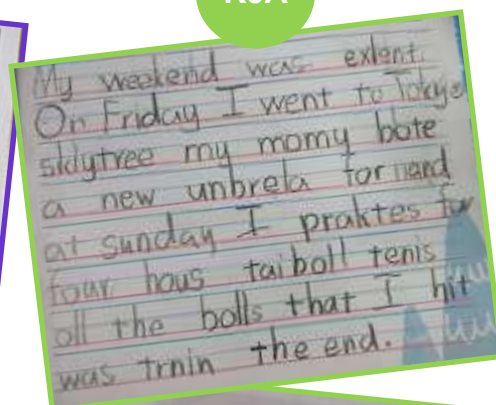 My weekend was exlent.
On Friday I went to Tokyo
skiytree my momy bote
a new unbrela for and
at sunday I praktes for
four hous taiboll tenis
oll the bolls that I hit
was trnin the end.